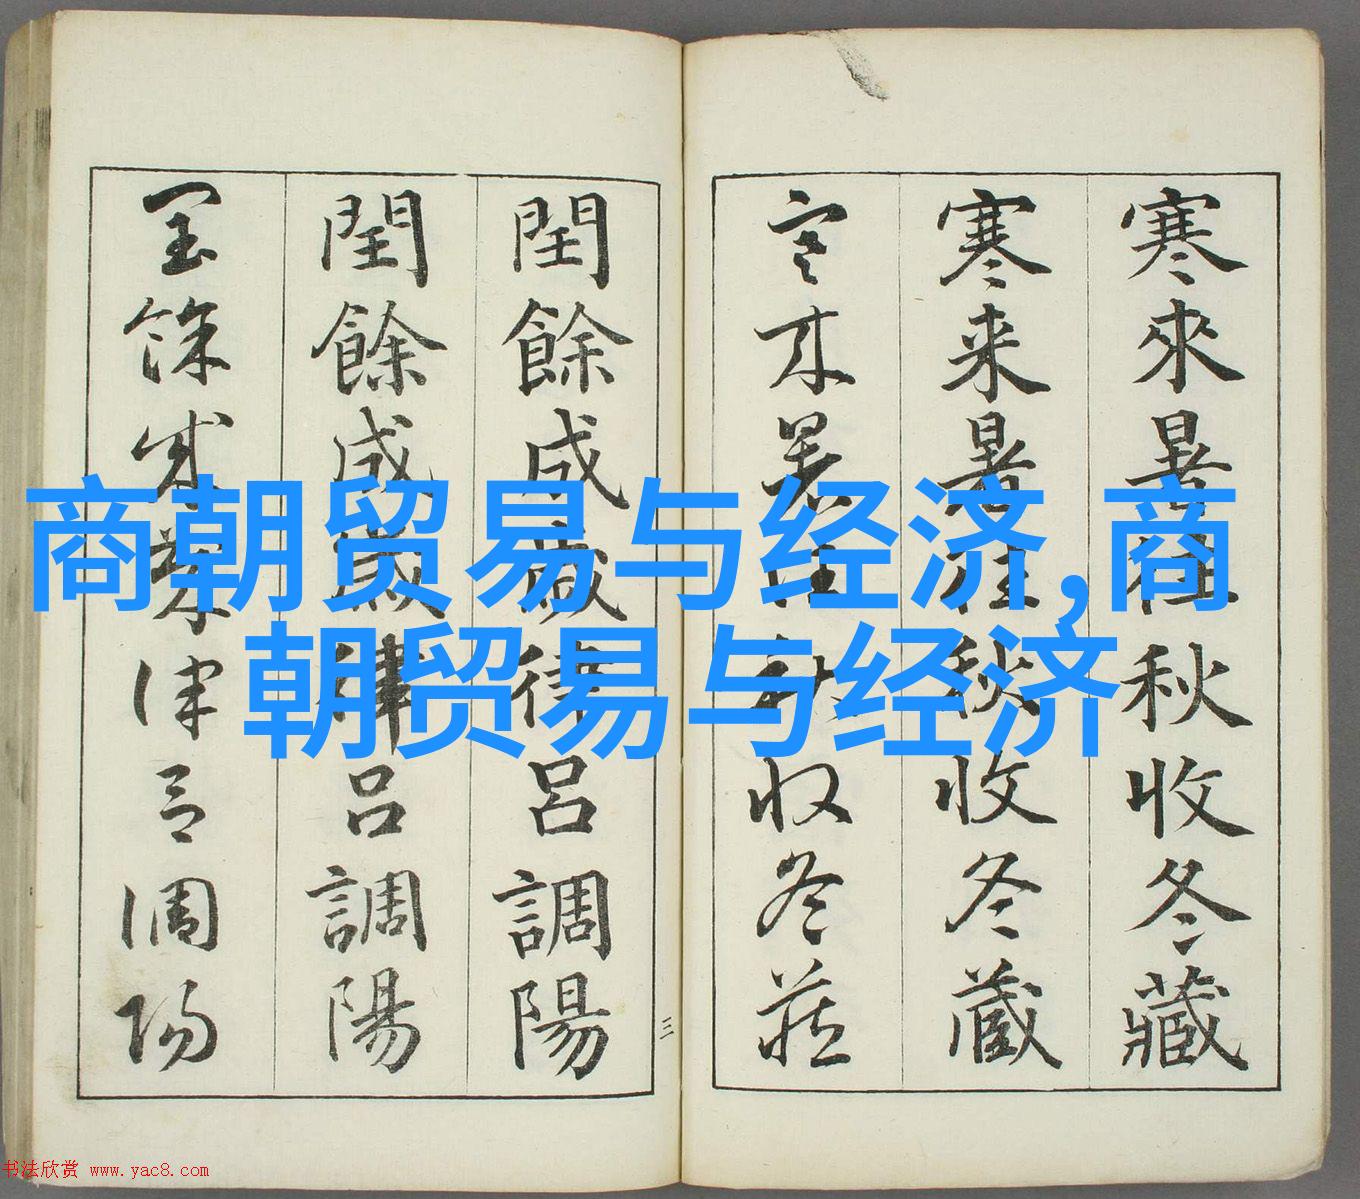 商朝贸易与经济,商
朝贸易与经济
寒來暑往秋收冬藏
寒来暑往秋收冬藏
寒来暑往秋收冬藏
三
閏餘成歲律呂調陽
閏餘成歲律呂調陽
閏餘成歲律呂調陽
书法欣赏 www.yac8.com